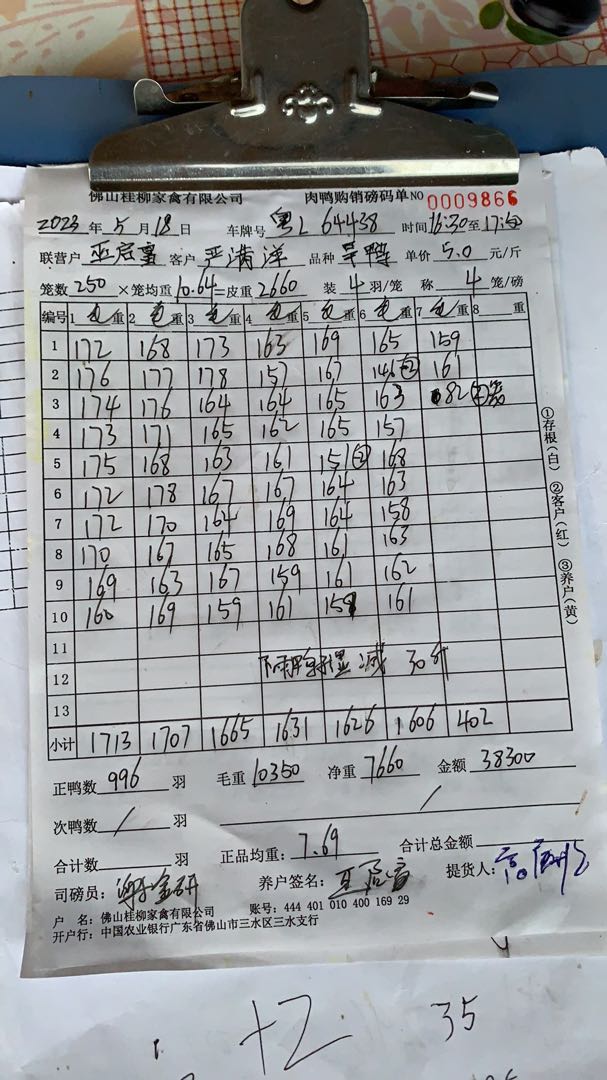 佛山桂柳家禽有限公司 肉鸭购销磅码单 NO 0009866
2023 年 5 月 18 日 车牌号 粤L 64438 时间 16:30 至 17:50
联营户 巫启富 客户 严满洋 品种 单价 5.0 元/斤
笼数 250 ×笼均重 10.64 =皮重 2660 装 4 羽/笼 称 4 笼/磅
编号 1 毛重 2 毛重 3 毛重 4 毛重 5 毛重 6 毛重 7 毛重 8 重
1 172 168 173 163 169 165 159
2 176 177 178 157 167 146② 161
3 174 176 164 164 165 163 82②笼
4 173 171 165 162 165 157
5 175 168 163 161 151② 168
6 172 178 167 167 164 163
7 172 170 164 169 164 158
8 170 167 165 168 161 163
9 169 163 167 159 161 162
10 160 169 159 161 159 161
11
12 下雨 湿 减 30斤
13
小计 1713 1707 1665 1631 1626 1606 402
正鸭数 996 羽 毛重 10350 净重 7660 金额 38300
次鸭数 / 羽 /
合计数 羽 正品均重: 7.69 合计总金额
司磅员: 养户签名: 巫启富 提货人:
户 名: 佛山桂柳家禽有限公司 账号: 444 401 010 400 169 29
开户行: 中国农业银行广东省佛山市三水区三水支行
①存根(白) ②客户(红) ③养户(黄)
+2 35